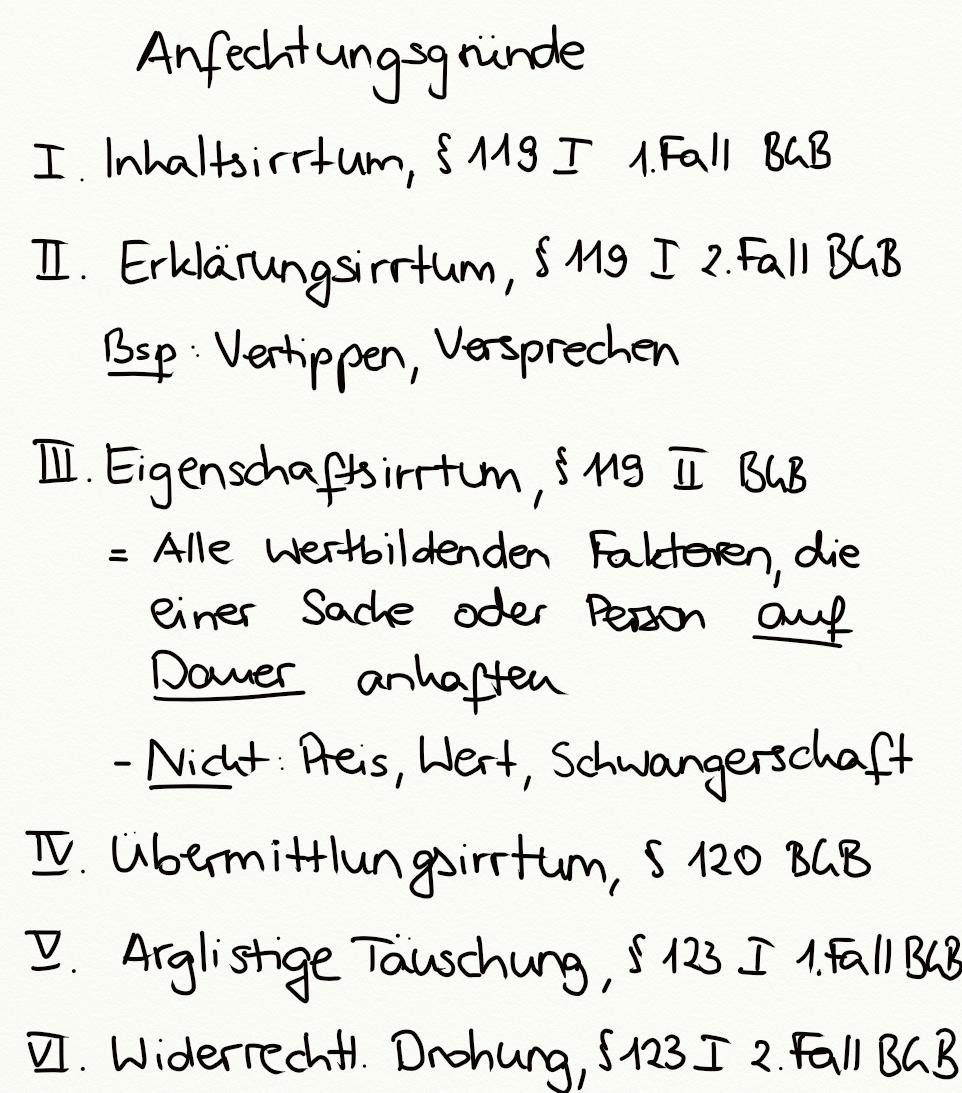 Anfechtungsgründe
I. Inhaltsirrtum, § 119 I 1.Fall BGB
II. Erklärungsirrtum, § 119 I 2.Fall BGB
Bsp: Vertippen, Versprechen
III. Eigenschaftsirrtum, § 119 II BGB
= Alle wertbildenden Faktoren, die
einer Sache oder Person auf
Dauer anhaften
- Nicht: Preis, Wert, Schwangerschaft
IV. Übermittlungsirrtum, § 120 BGB
V. Arglistige Täuschung, § 123 I 1.Fall BGB
VI. Widerrechtl. Drohung, § 123 I 2.Fall BGB